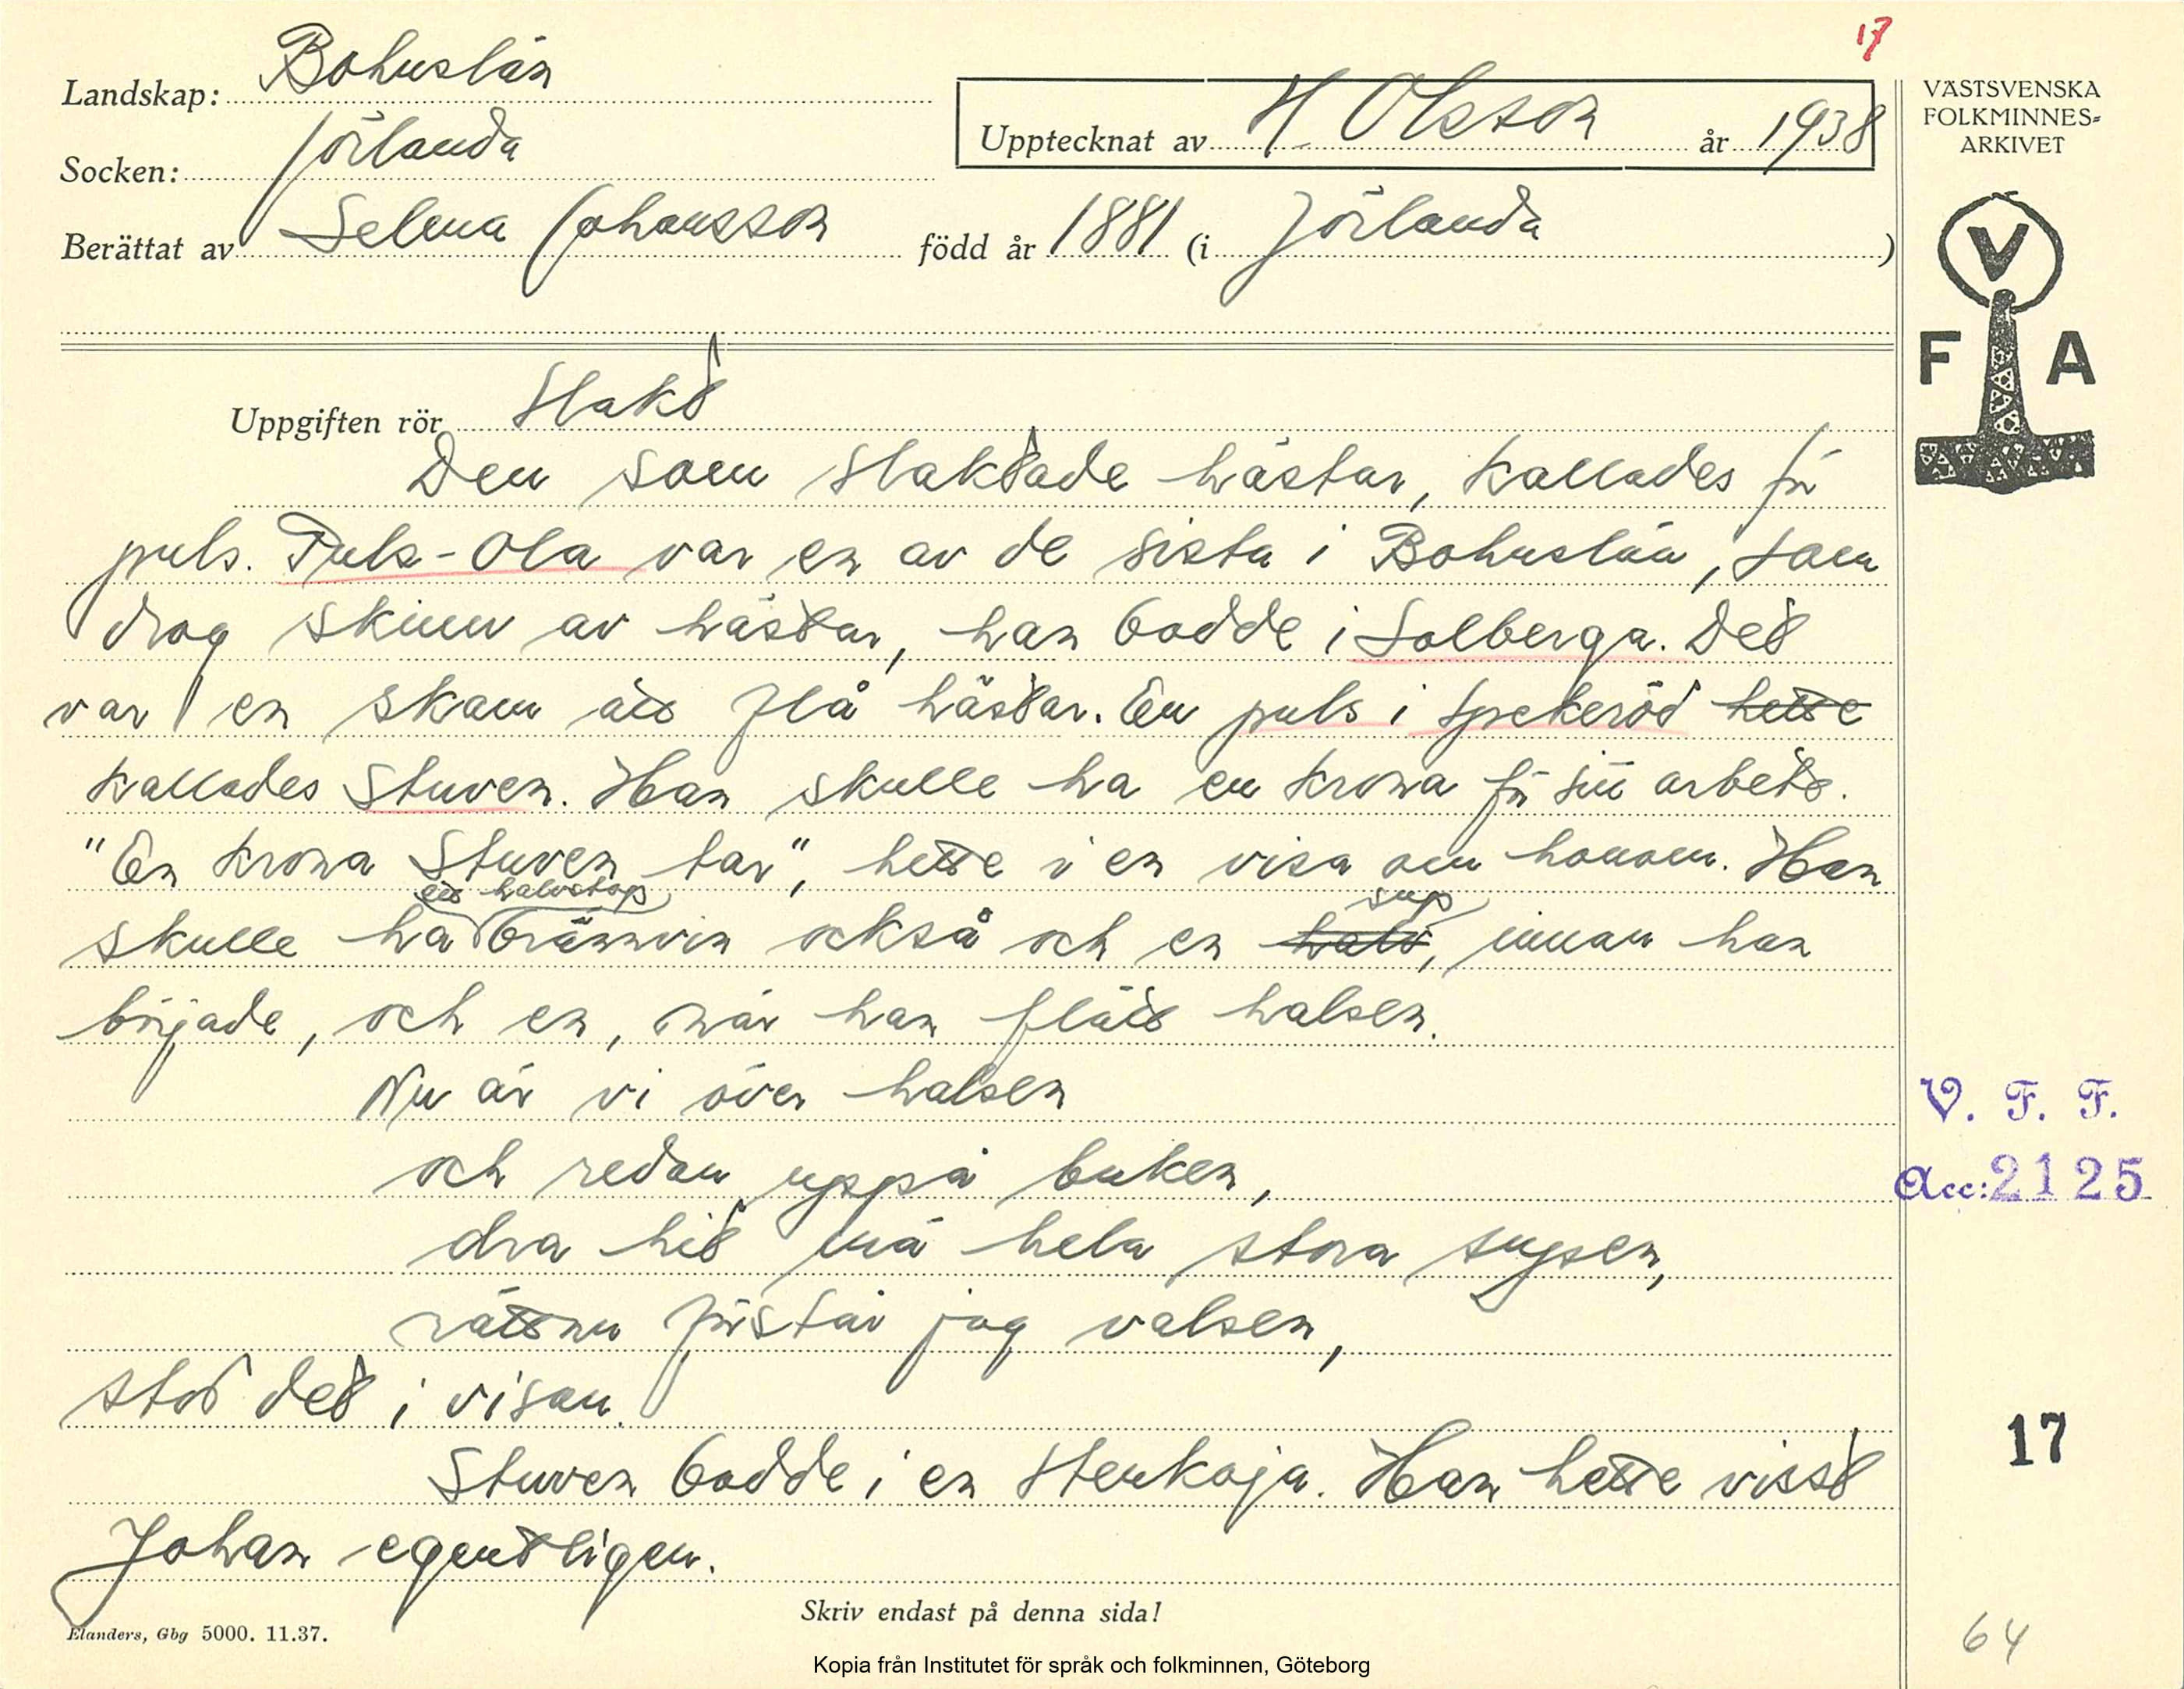 17
Landskap: Bohuslän
Socken: Jörlanda
Upptecknat av H Olsson år 1938
Berättat av Selma Johansson född år 1881 (i Jörlanda)
VÄSTSVENSKA
FOLKMINNES-
ARKIVET
V
F A
Uppgiften rör Slakt
Den som slaktade hästar, kallades för
puls. Puls-Ola var en av de sista i Bohuslän, som
drog skinn av hästar, han bodde i Solberga. Det
var en skam att flå hästar. En puls i Spekeröd hette
kallades Stuven. Han skulle ha en krona för sitt arbete.
"En krona Stuven tar", hette i en visa om honom. Han
ett halvstop sup
skulle ha brännvin också och en halv, innan han
började, och en, när han flått halsen.
Nu är vi över halsen
och redan uppå buken,
dra hit må hela stora supen,
rättnu förstår jag valsen,
stod det i visan.
Stuven bodde i en stenkoja. Han hette visst
Johan egentligen.
V. F. F.
Acc: 2125
17
64
Skriv endast på denna sida!
Elanders, Gbg 5000. 11.37.
Kopia från Institutet för språk och folkminnen, Göteborg